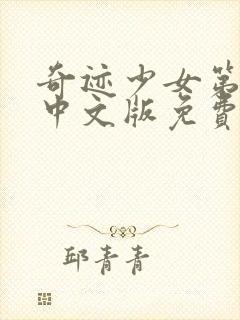 奇迹少女第
中文版免费
邱青青